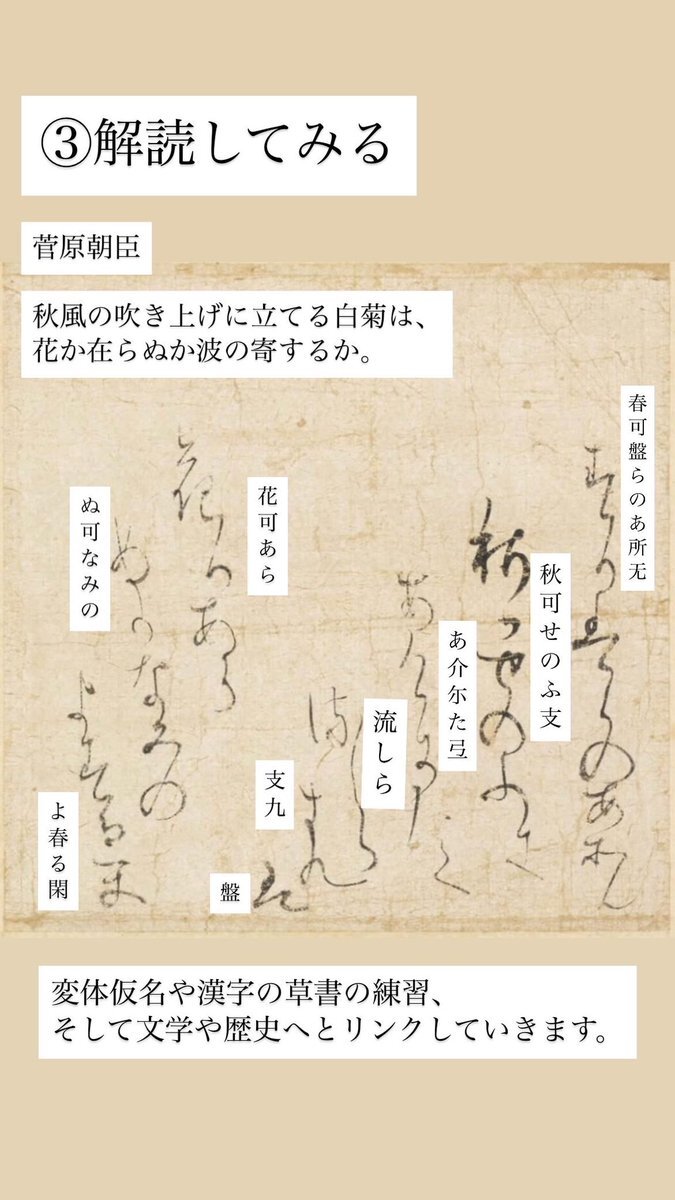 ③解読してみる
菅原朝臣
秋風の吹き上げに立てる白菊は、
花か在らぬか波の寄するか。
春可盤らのあ所无
秋可せのふ支
あ介尓た弖
流しら
支九
盤
花可あら
ぬ可なみの
よ春る閑
変体仮名や漢字の草書の練習、
そして文学や歴史へとリンクしていきます。